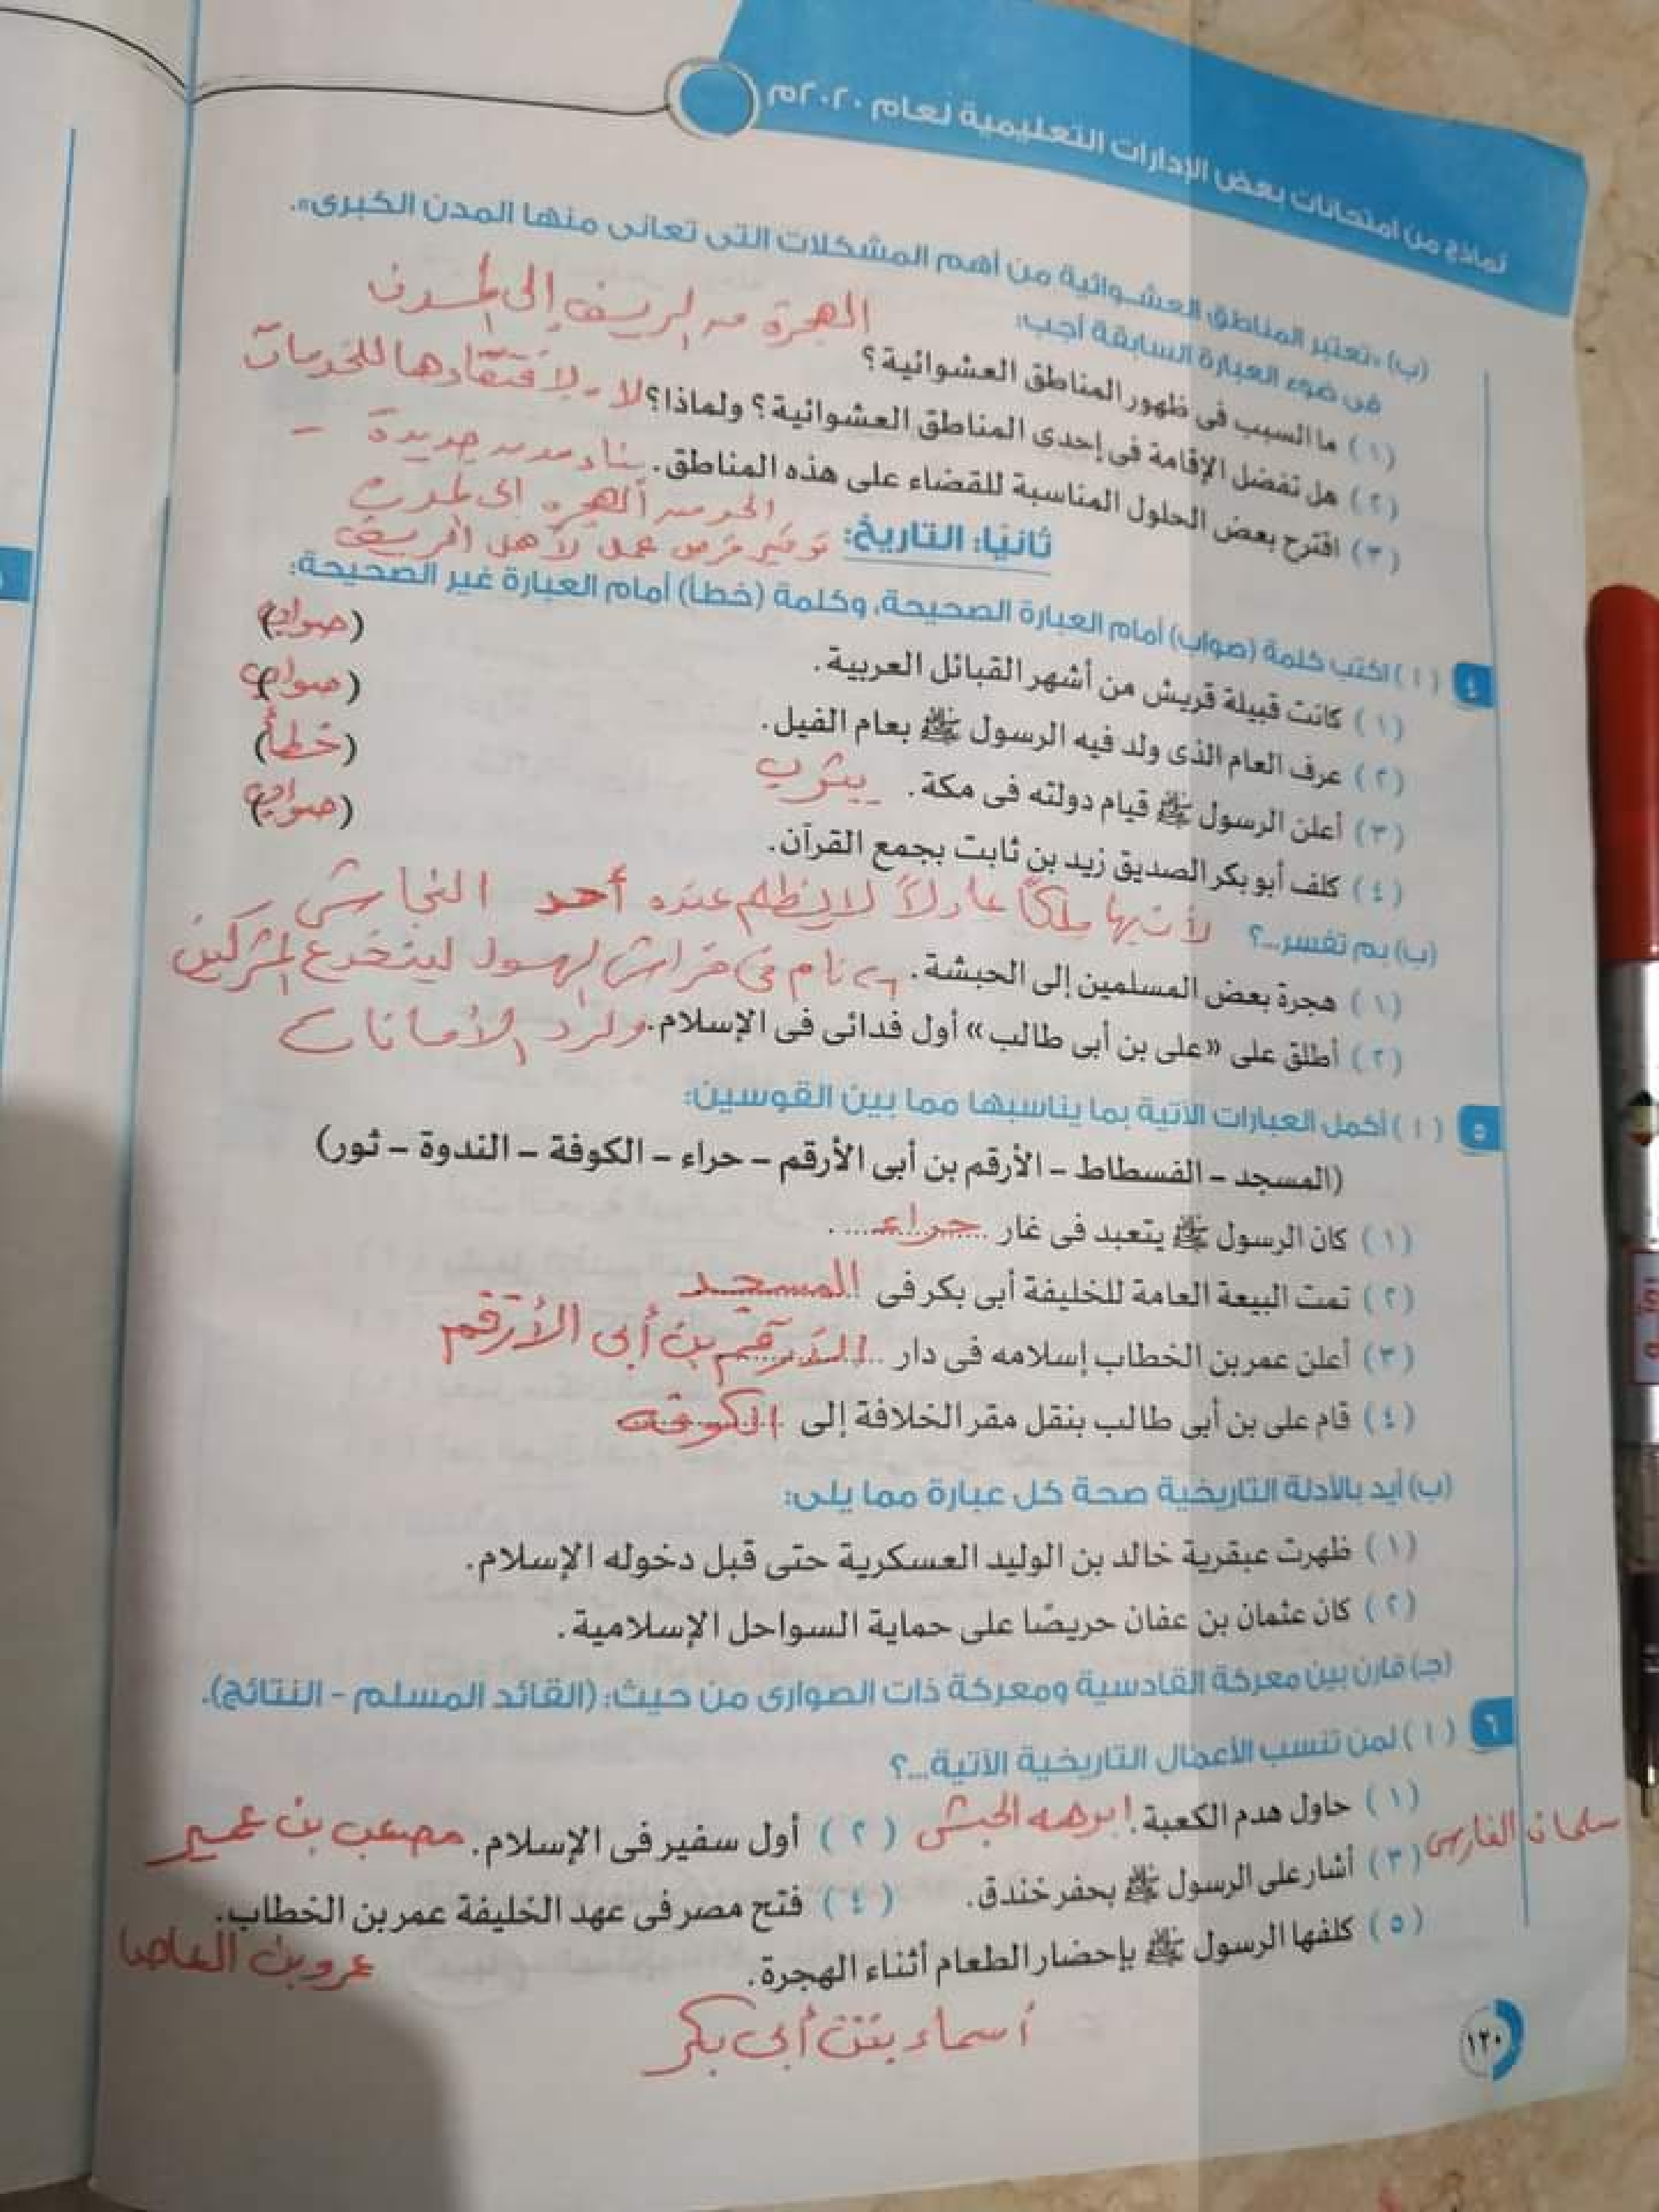 نماذج من امتحانات بعض الإدارات التعليمية لعام ٢٠٢٠م
(ب) «تعتبر المناطق العشوائية من أهم المشكلات التى تعانى منها المدن الكبرى».
فى ضوء العبارة السابقة أجب:
الهجرة من الريف إلى المدن
(١) ما السبب فى ظهور المناطق العشوائية؟
(٢) هل تفضل الإقامة فى إحدى المناطق العشوائية؟ ولماذا؟ لا - لافتقادها للخدمات
(٣) اقترح بعض الحلول المناسبة للقضاء على هذه المناطق. بناء مدن جديدة -
الحد من الهجرة إلى المدن
ثانيًا: التاريخ: توفير فرص عمل لأهل الريف
٤ (أ) اكتب كلمة (صواب) أمام العبارة الصحيحة، وكلمة (خطأ) أمام العبارة غير الصحيحة:
(١) كانت قبيلة قريش من أشهر القبائل العربية. (صواب)
(٢) عرف العام الذى ولد فيه الرسول ﷺ بعام الفيل. (صواب)
(٣) أعلن الرسول ﷺ قيام دولته فى مكة. يثرب (خطأ)
(٤) كلف أبو بكر الصديق زيد بن ثابت بجمع القرآن. (صواب)
(ب) بم تفسر...؟ لأن بها ملكًا عادلًا لا يظلم عنده أحد النجاشى
(١) هجرة بعض المسلمين إلى الحبشة.
نام فى فراش الرسول ليخدع المشركين
(٢) أطلق على «على بن أبى طالب» أول فدائى فى الإسلام. ولرد الأمانات
٥ (أ) أكمل العبارات الآتية بما يناسبها مما بين القوسين:
(المسجد – الفسطاط – الأرقم بن أبى الأرقم – حراء – الكوفة – الندوة – ثور)
(١) كان الرسول ﷺ يتعبد فى غار حراء.
(٢) تمت البيعة العامة للخليفة أبى بكر فى المسجد
(٣) أعلن عمر بن الخطاب إسلامه فى دار الأرقم بن أبى الأرقم
(٤) قام على بن أبى طالب بنقل مقر الخلافة إلى الكوفة
(ب) أيد بالأدلة التاريخية صحة كل عبارة مما يلى:
(١) ظهرت عبقرية خالد بن الوليد العسكرية حتى قبل دخوله الإسلام.
(٢) كان عثمان بن عفان حريصًا على حماية السواحل الإسلامية.
(جـ) قارن بين معركة القادسية ومعركة ذات الصوارى من حيث: (القائد المسلم - النتائج).
٦ (أ) لمن تنسب الأعمال التاريخية الآتية...؟
(١) حاول هدم الكعبة. ابرهه الحبشى (٢) أول سفير فى الإسلام. مصعب بن عمير
(٣) أشار على الرسول ﷺ بحفر خندق. سلمان الفارسى (٤) فتح مصر فى عهد الخليفة عمر بن الخطاب.
(٥) كلفها الرسول ﷺ بإحضار الطعام أثناء الهجرة. عمرو بن العاص
أسماء بنت أبى بكر
١٢٠